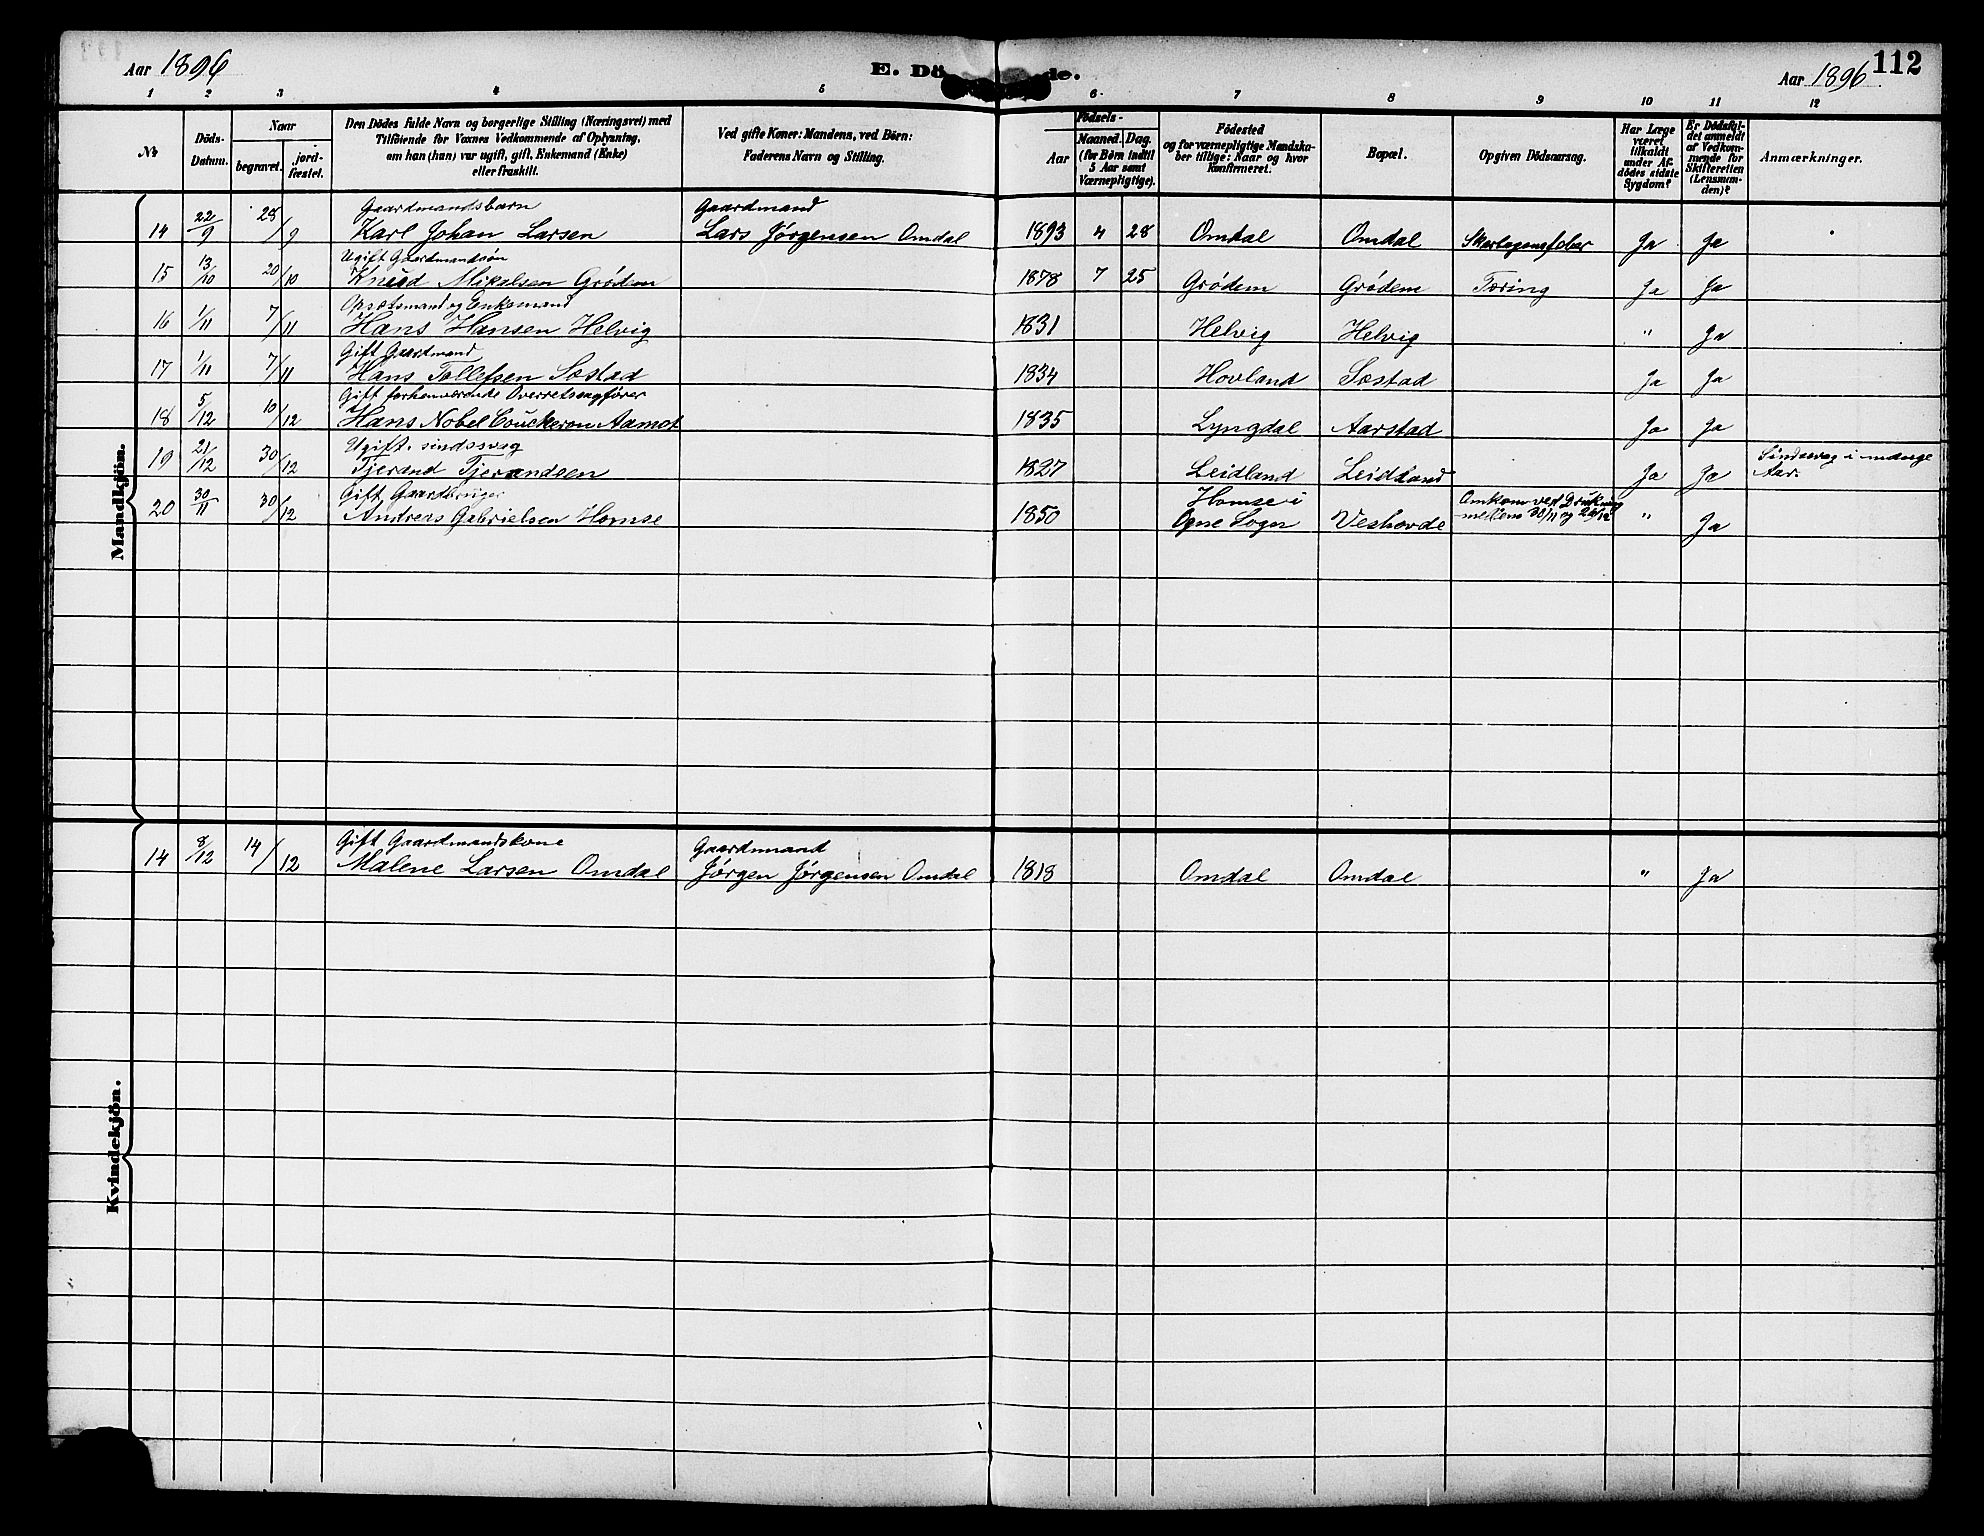 Aar 1896
E. Dö de.
Aar 1896 112
1 2 3 4 5 6. 7 8 9 10 11 12
№
Döds-
Datum.
Naar
begravet.
jord-
fæstet.
Den Dödes fulde Navn og borgerlige Stilling (Næringsvei) med
Tilföiende for Voxnes Vedkommende af Oplysning,
om han (hun) var ugift, gift, Enkemand (Enke)
eller fraskilt.
Ved gifte Koner: Mandens, ved Börn:
Faderens Navn og Stilling.
Födsels-
Aar
Maaned. Dag.
(for Börn indtil
5 Aar samt
Værnepligtige).
Födested
og for værnepligtige Mandska-
ber tillige: Naar og hvor
Konfirmeret.
Bopæl.
Opgiven Dödsaarsag.
Har Læge
været
tilkaldt
under Af-
dödes sidste
Sygdom?
Er Dödsfal-
det anmeldt
af Vedkom-
mende for
Skifteretten
(Lensman-
den)?
Anmærkninger.
Mandkjön.
Gaardmandsbarn Gaardmand
14 22/9 28/9 Karl Johan Larsen Lars Jørgensen Omdal 1893 4 28 Omdal Omdal Ja Ja
Ugift Gaardmandssøn
15 13/10 20/10 Knud Mikalsen Grødem 1878 7 25 Grødem Grødem Tæring Ja Ja
Opsetsmand og Enkemand
16 1/11 7/11 Hans Hansen Helvig 1831 Helvig Helvig " Ja
Gift Gaardmand
17 1/11 7/11 Hans Tollefsen Sæstad 1834 Hovland Sæstad Ja Ja
Gift forhenværende Overretssagfører
18 5/12 10/12 Hans Nobel Couckeron Aamot 1835 Lyngdal Aarstad Ja Ja
Ugift. sindssvag
19 21/12 30/12 Tjerand Tjerandsen 1827 Leidland Leidland Ja Ja Sindssvag i mange
Aar.
Gift Gaardbruger
20 30/11 30/12 Andreas Gabrielsen Homse 1850 Homse i
Ogne Sogn Veshovde Omkom ved Drukning
mellem 30/11 og " Ja
Kvindekjön.
Gift Gaardmandskone Gaardmand
14 8/12 14/12 Malene Larsen Omdal Jørgen Jørgensen Omdal 1818 Omdal Omdal " Ja